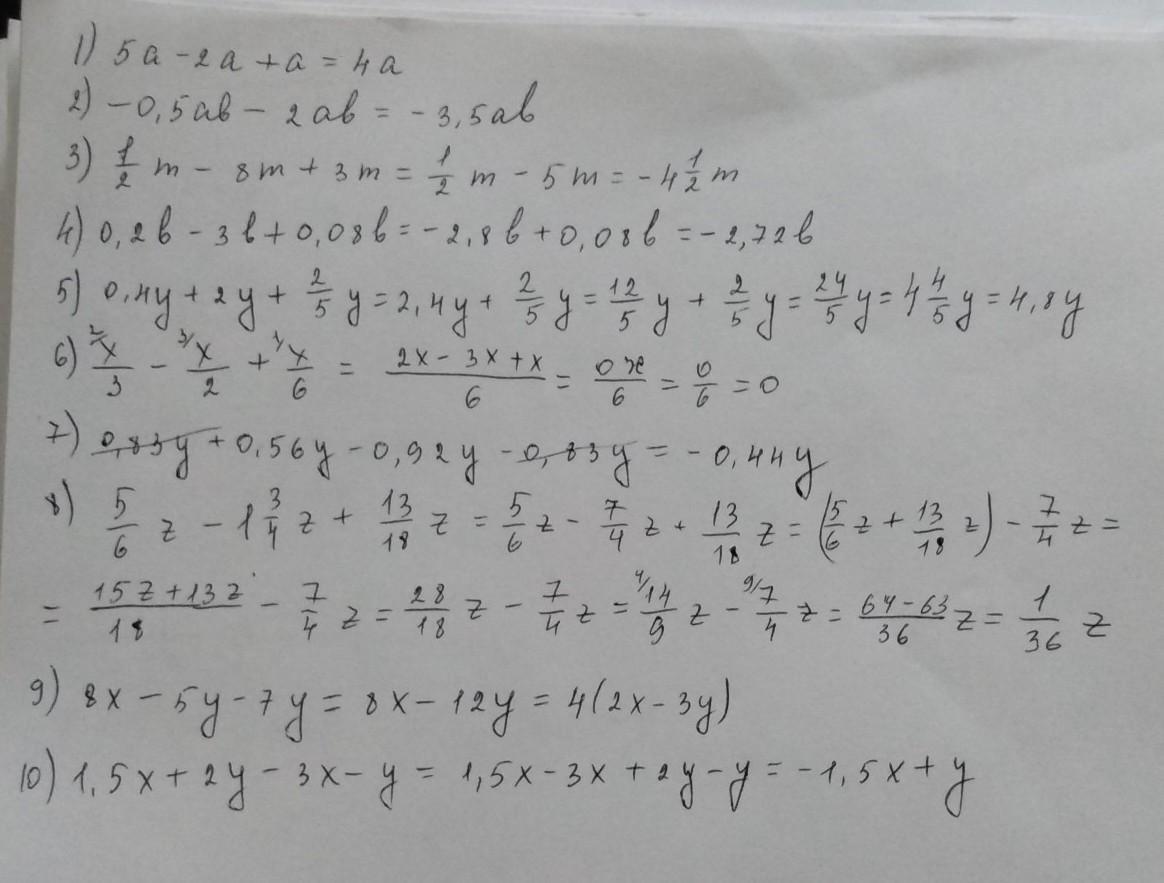 1) 5a - 2a + a = 4a
2) -0,5ab - 2ab = -3,5ab
3) 1/2 m - 8m + 3m = 1/2 m - 5m = -4 1/2 m
4) 0,2b - 3b + 0,08b = -2,8b + 0,08b = -2,72b
5) 0,4y + 2y + 2/5 y = 2,4y + 2/5 y = 12/5 y + 2/5 y = 24/5 y = 4 4/5 y = 4,8y
6) 2/ x/3 - 3/ x/2 + 1/ x/6 = (2x - 3x + x)/6 = 0x/6 = 0/6 = 0
7) 0,83y + 0,56y - 0,92y - 0,83y = -0,44y
8) 5/6 z - 1 3/4 z + 13/18 z = 5/6 z - 7/4 z + 13/18 z = (5/6 z + 13/18 z) - 7/4 z =
= (15z + 13z)/18 - 7/4 z = 28/18 z - 7/4 z = 4/ 14/9 z - 9/ 7/4 z = (64 - 63)/36 z = 1/36 z
9) 8x - 5y - 7y = 8x - 12y = 4(2x - 3y)
10) 1,5x + 2y - 3x - y = 1,5x - 3x + 2y - y = -1,5x + y